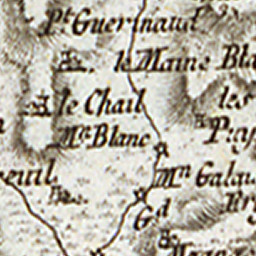 Pt. Guerinaud
le Maine Bla
le Chail
les
Mn. Blanc
Mn Galau
euil
Gd